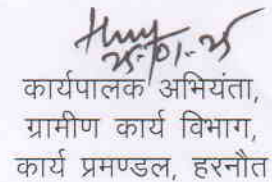 25-01-25
कार्यपालक अभियंता,
ग्रामीण कार्य विभाग,
कार्य प्रमण्डल, हरनौत